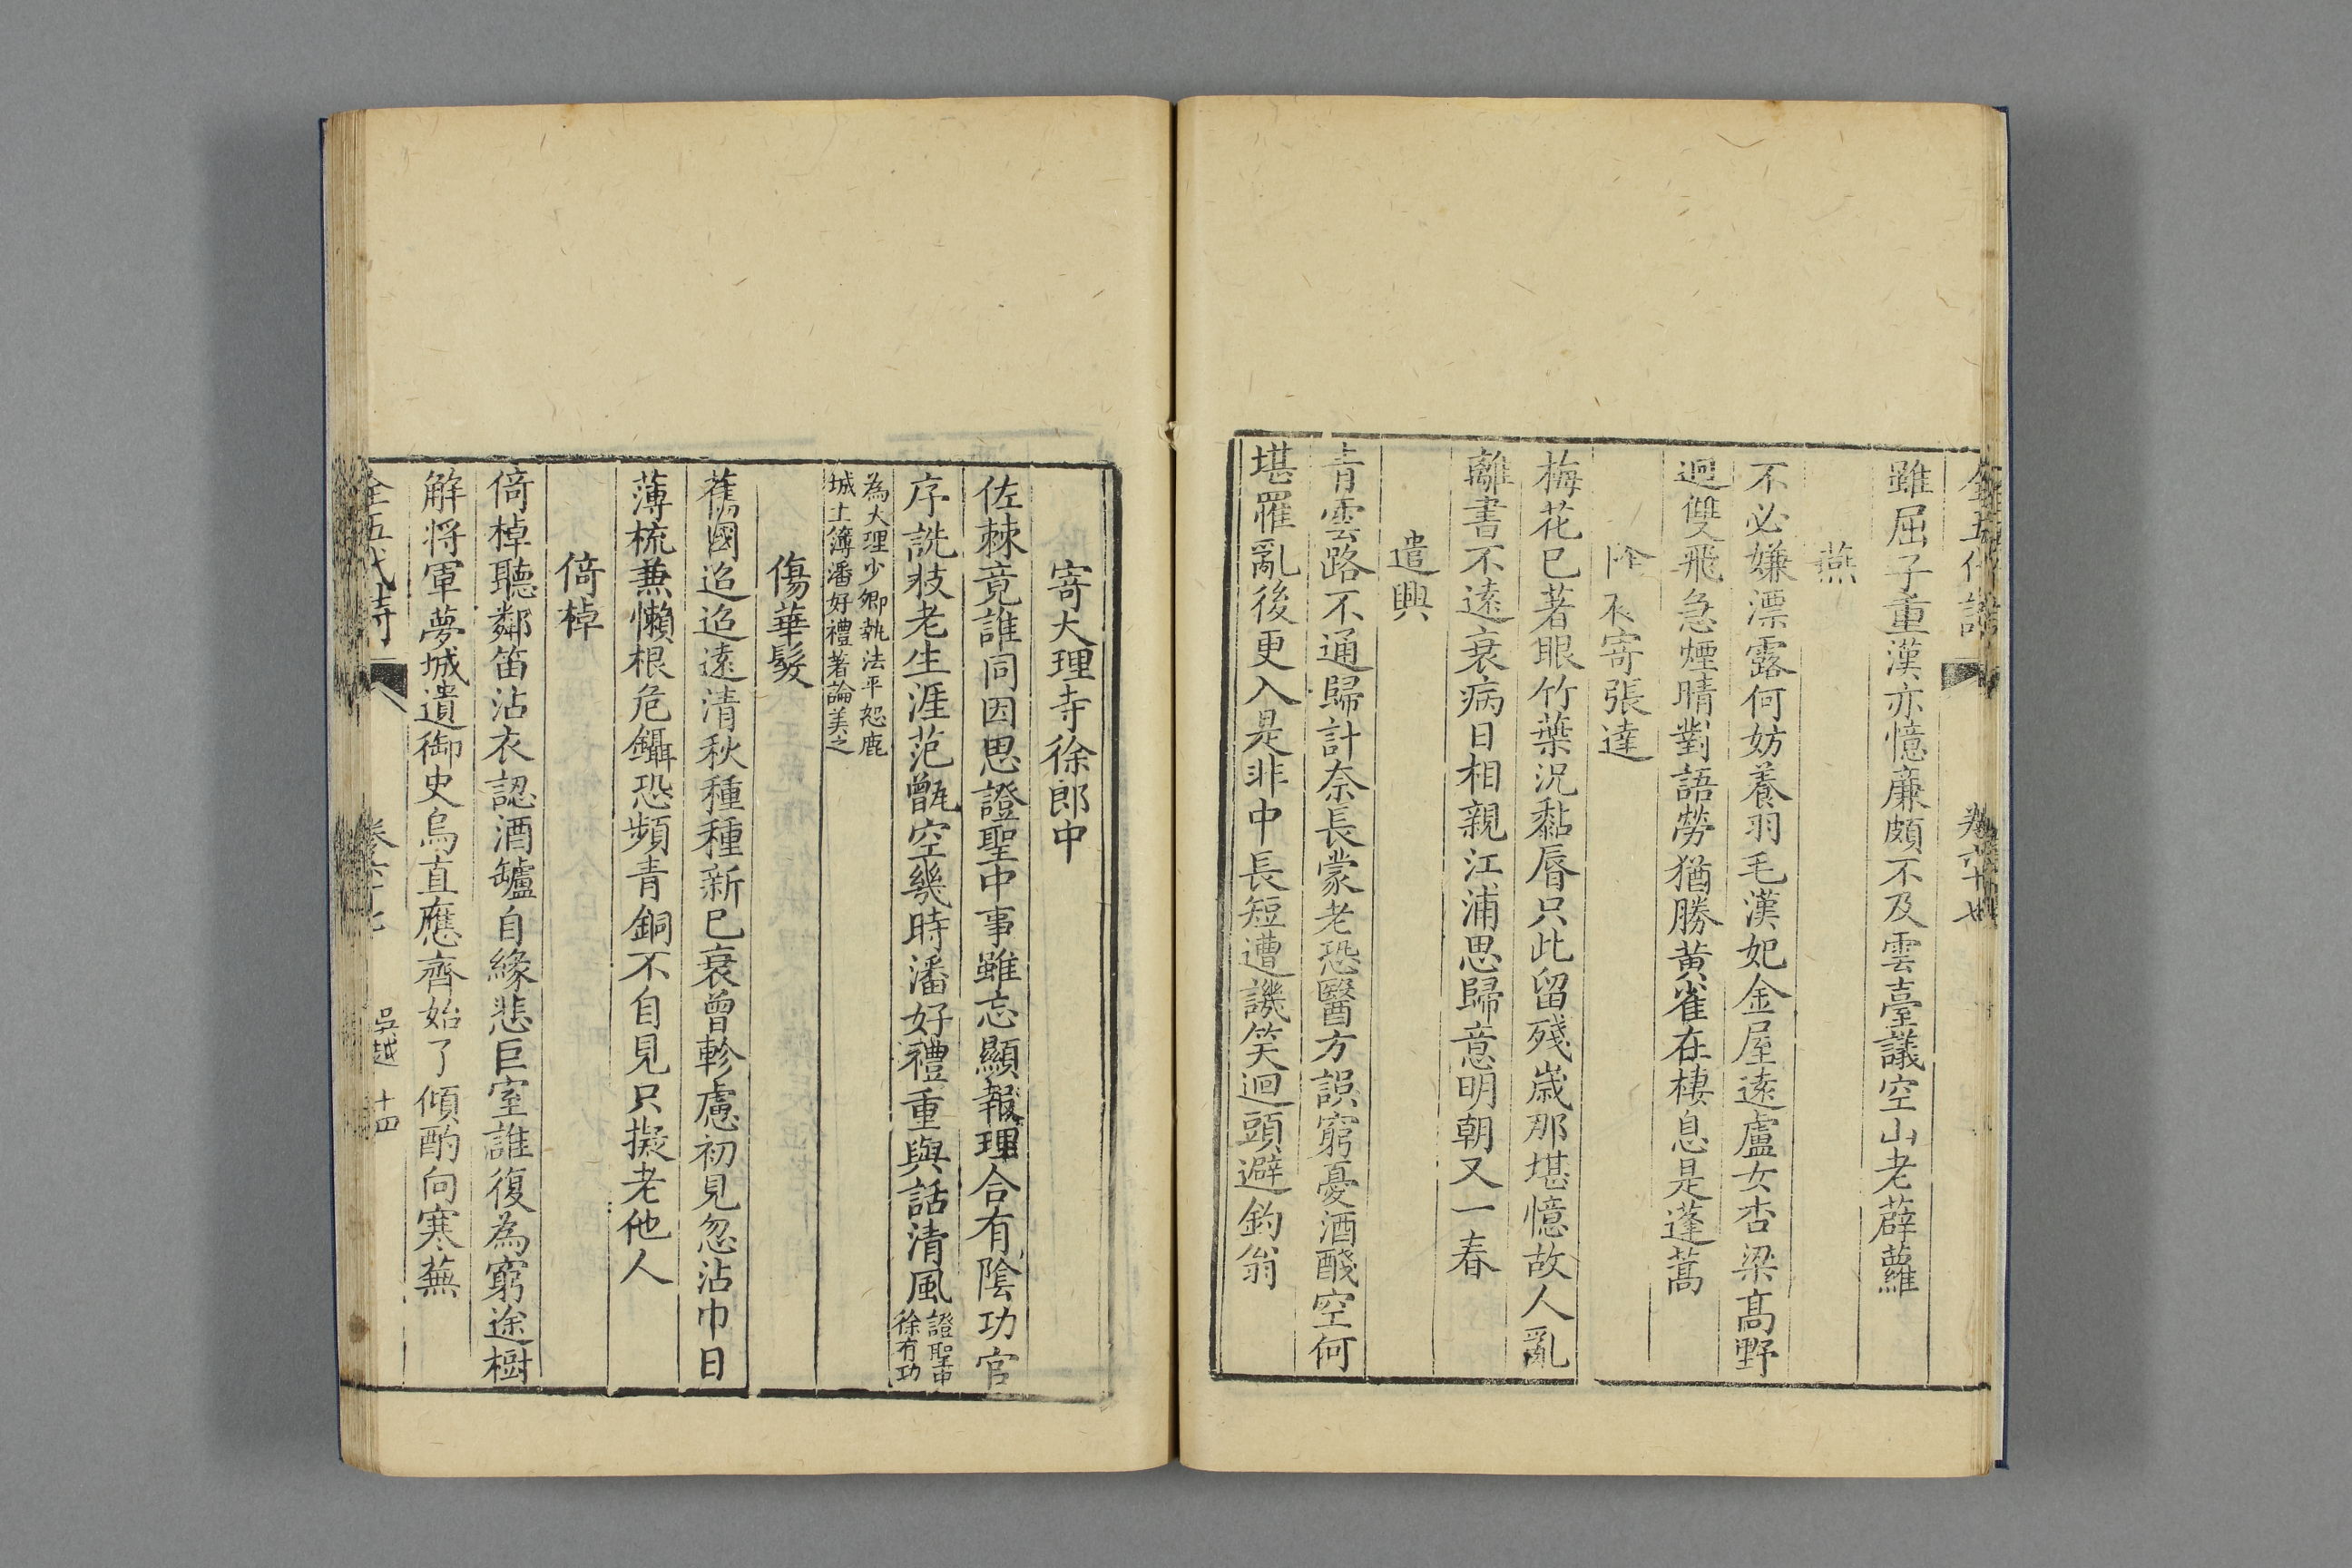 雖屈子重漢亦憶廉頗不及雲臺議空山老薜蘿
燕
不必嫌漂露何妨養羽毛漢妃金屋遠盧女杏梁高野
迥雙飛急煙晴對語勞猶勝黄雀在棲息是蓬蒿
寄張達
梅花已著眼竹葉況黏脣只此留殘歲那堪憶故人亂
離書不遠衰病日相親江浦思歸意明朝又一春
遣興
青雲路不通歸計奈長蒙老恐醫方誤窮憂酒醆空何
堪罹亂後更入是非中長短遭譏笑迴頭避釣翁
寄大理寺徐郎中
佐棘竟誰同因思證聖中事雖忘顯報理合有陰功官
序詵枝老生涯范甑空幾時潘好禮重與話清風
證聖中
徐有功
為大理少卿執法平恕鹿
城主簿潘好禮著論美之
傷華髮
舊國迢迢遠清秋種種新已衰曾軫慮初見忽沾巾日
薄梳兼懶根危鑷恐頻青銅不自見只擬老他人
倚棹
倚棹聽鄰笛沾衣認酒罏自緣悲巨室誰復為窮途樹
解將軍夢城遺御史烏直應齊始了傾酌向寒蕪
全五代詩
卷六十七
吳越
十四